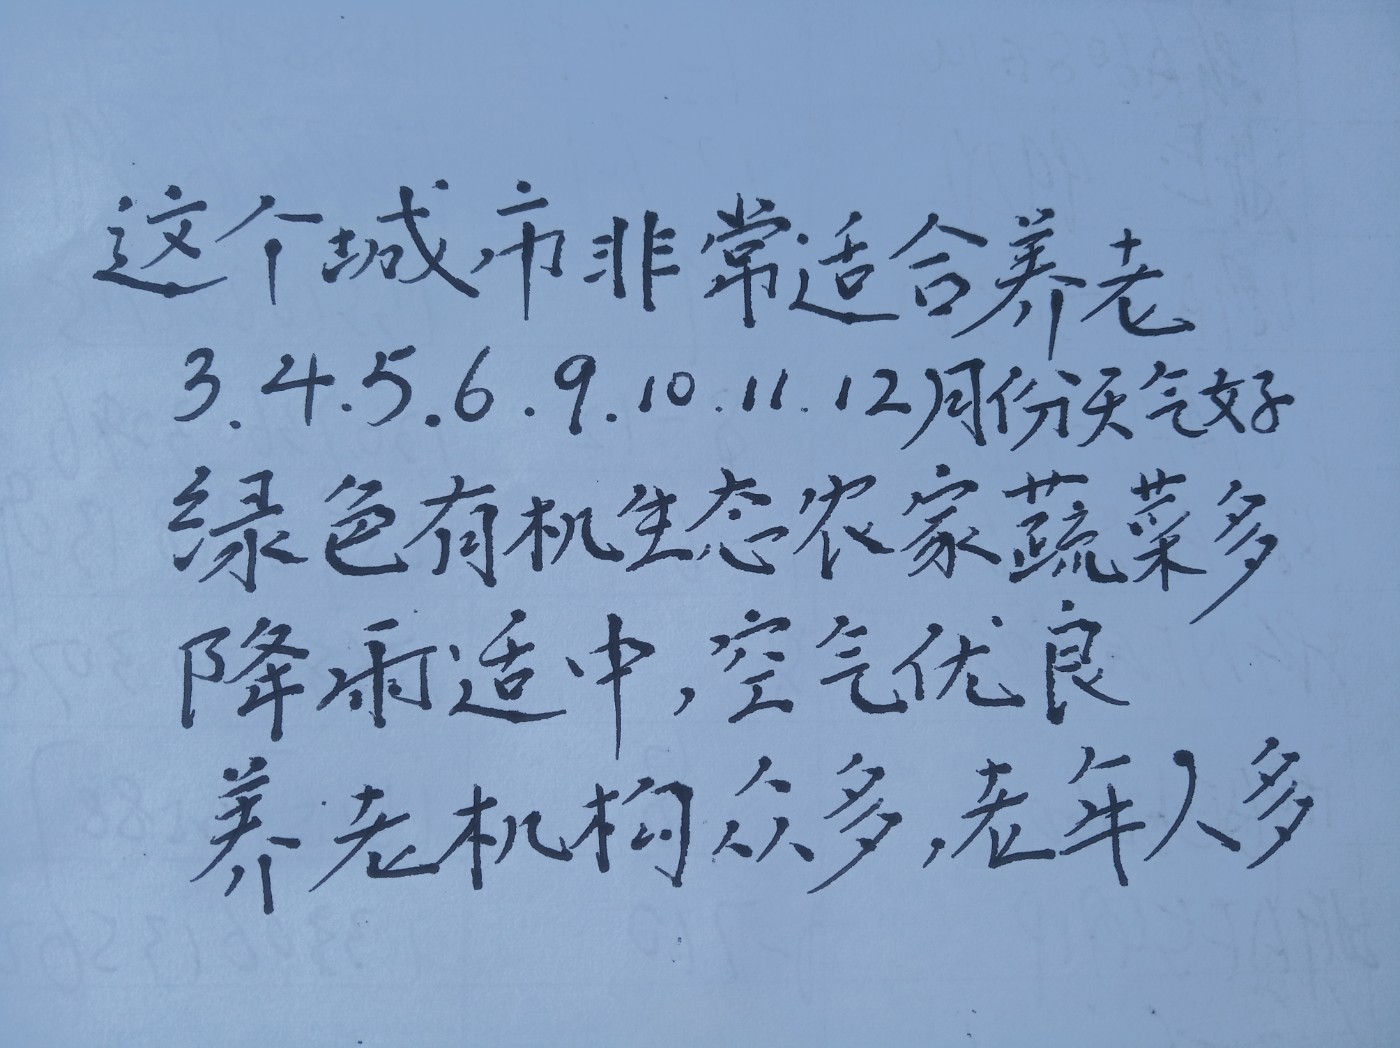 这个城市非常适合养老
3.4.5.6.9.10.11.12月份天气好
绿色有机生态农家蔬菜多
降雨适中,空气优良
养老机构众多,老年人多